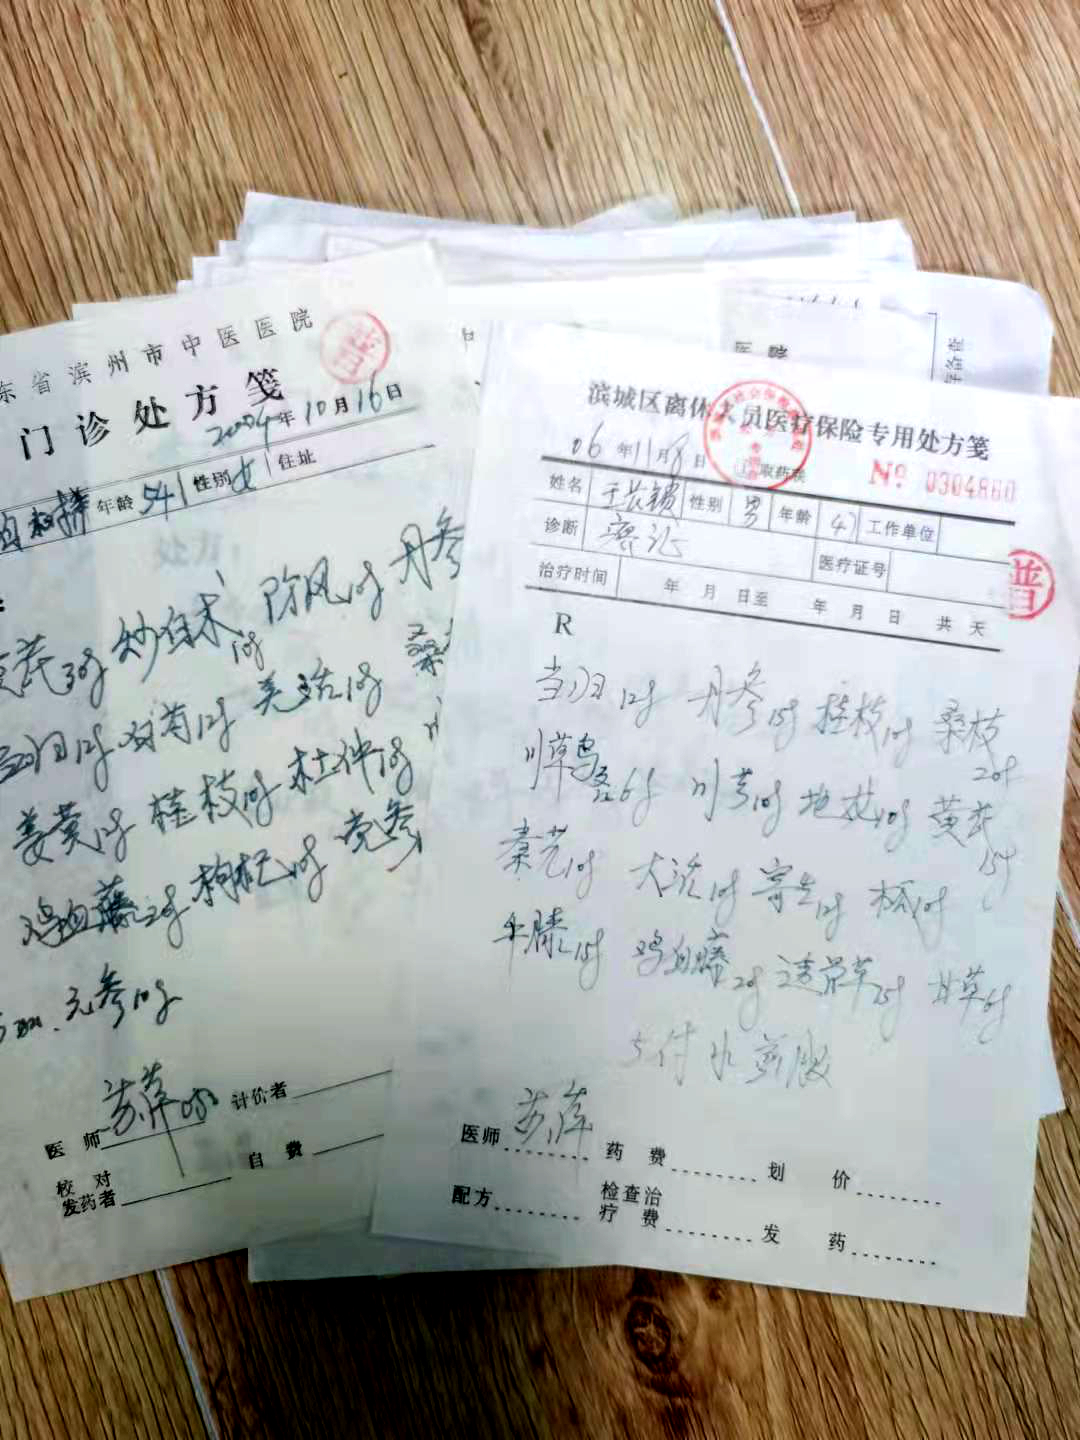 东省滨州市中医医院
门诊处方笺
2004年10月16日
年龄 54 性别 女 住址
芪30g 炒白术10g 防风10g 丹参
当归12g 羌活10g 桑
姜黄12g 桂枝10g 杜仲10g
鸡血藤20g 枸杞10g 党参
元参10g
医师 苏萍 计价者
校对 自费
发药者
医院
滨城区离休人员医疗保险专用处方笺
06年11月8日 取药族 № 0304860
姓名 王长锁 性别 男 年龄 47 工作单位
诊断 痹证 医疗证号
治疗时间 年 月 日至 年 月 日 共 天
普
R
当归12g 丹参15g 桂枝10g 桑枝20g
川草乌各6g 川芎10g 地龙10g 黄芪15g
秦艽10g 寄生12g
牛膝15g 鸡血藤20g 透骨草15g 甘草6g
5付 水煎服
医师 苏萍 药费 划价
配方 检查治疗费 发药